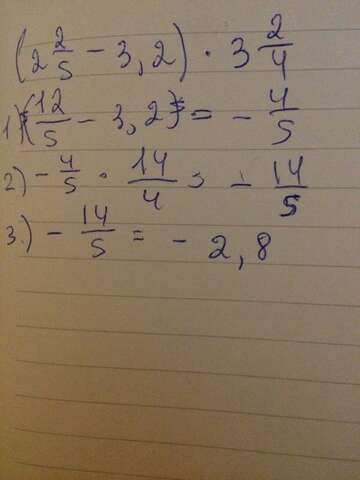 (2 2/5 - 3,2) · 3 2/4
1) (12/5 - 3,2) = - 4/5
2) - 4/5 · 14/4 = - 14/5
3.) - 14/5 = - 2,8